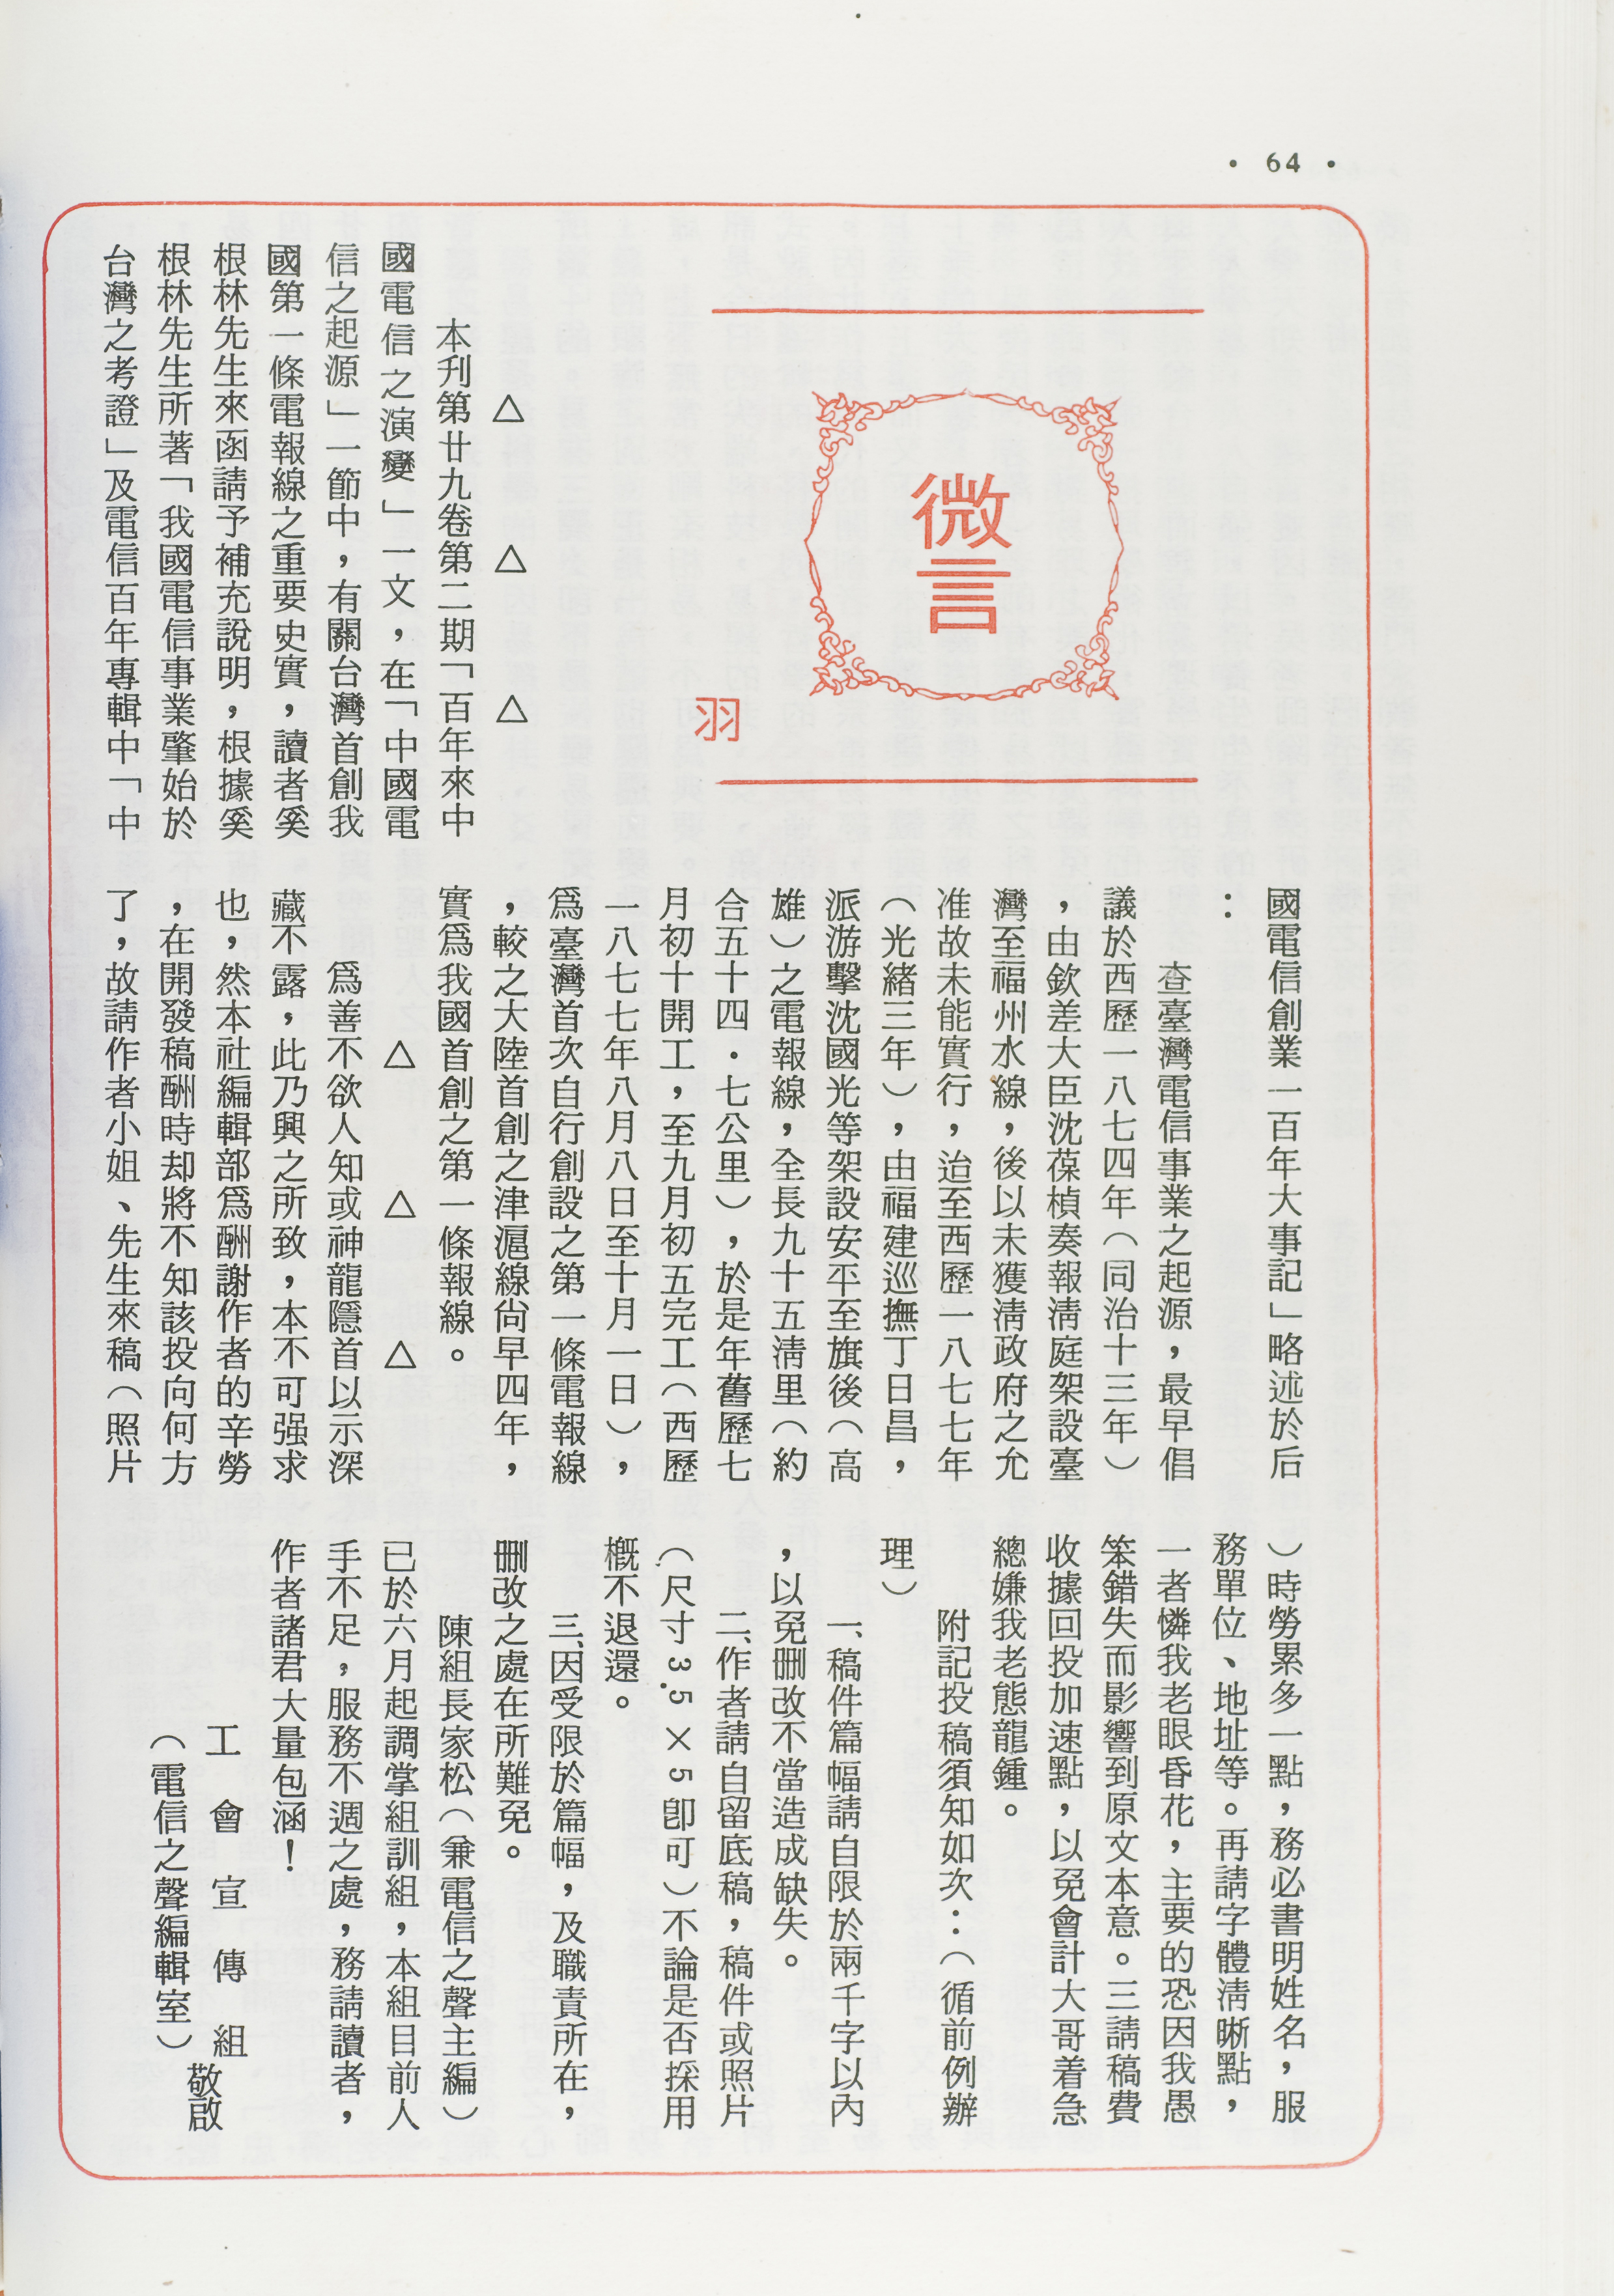 • 64 •
微言
羽
△　△　△
本刋第廿九卷第二期「百年來中
國電信之演變」一文，在「中國電
信之起源」一節中，有關台灣首創我
國第一條電報線之重要史實，讀者奚
根林先生來函請予補充說明，根據奚
根林先生所著「我國電信事業肇始於
台灣之考證」及電信百年專輯中「中
國電信創業一百年大事記」略述於后
：
查臺灣電信事業之起源，最早倡
議於西歷一八七四年（同治十三年）
，由欽差大臣沈葆楨奏報淸庭架設臺
灣至福州水線，後以未獲淸政府之允
准故未能實行，迨至西歷一八七七年
（光緒三年），由福建巡撫丁日昌，
派游擊沈國光等架設安平至旗後（高
雄）之電報線，全長九十五淸里（約
合五十四．七公里），於是年舊歷七
月初十開工，至九月初五完工（西歷
一八七七年八月八日至十月一日），
爲臺灣首次自行創設之第一條電報線
，較之大陸首創之津滬線尙早四年，
實爲我國首創之第一條報線。
△　△　△
爲善不欲人知或神龍隱首以示深
藏不露，此乃興之所致，本不可强求
也，然本社編輯部爲酬謝作者的辛勞
，在開發稿酬時却將不知該投向何方
了，故請作者小姐、先生來稿（照片
）時勞累多一點，務必書明姓名，服
務單位、地址等。再請字體淸晰點，
一者憐我老眼昏花，主要的恐因我愚
笨錯失而影響到原文本意。三請稿費
收據回投加速點，以免會計大哥着急
總嫌我老態龍鍾。
附記投稿須知如次：（循前例辦
理）
一、稿件篇幅請自限於兩千字以內
，以免删改不當造成缺失。
二、作者請自留底稿，稿件或照片
（尺寸3.5×5卽可）不論是否採用
槪不退還。
三、因受限於篇幅，及職責所在，
删改之處在所難免。
陳組長家松（兼電信之聲主編）
已於六月起調掌組訓組，本組目前人
手不足，服務不週之處，務請讀者，
作者諸君大量包涵！
工會宣傳組
（電信之聲編輯室）
敬啟